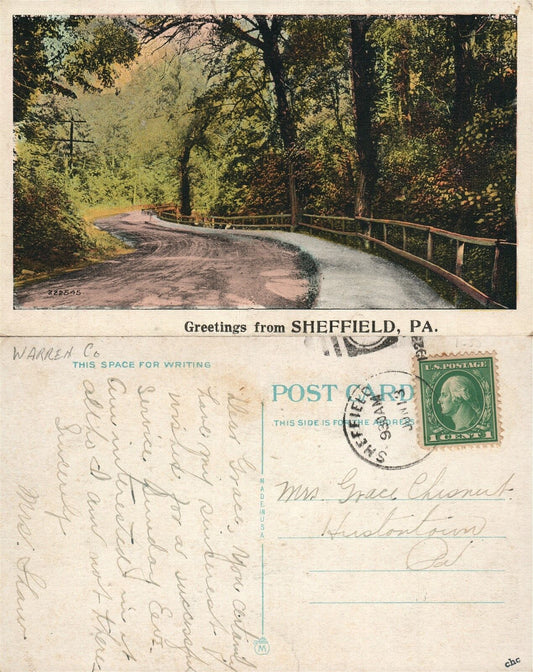 222545
Greetings from SHEFFIELD, PA.
WARREN Co
THIS SPACE FOR WRITING
Dear Grace You certainly
have my sincerest
wishes for a successful
Service Sunday Eve.
Am interested in it
altho I am not there
Sincerely
Mrs. Shaw
MADE IN USA
M
POST CARD
THIS SIDE IS FOR THE ADDRESS
SHEFFIELD
JUN 13
930AM
U.S. POSTAGE
1 CENT 1
Mrs. Grace Chesnut
Hustontown
Pa
chc